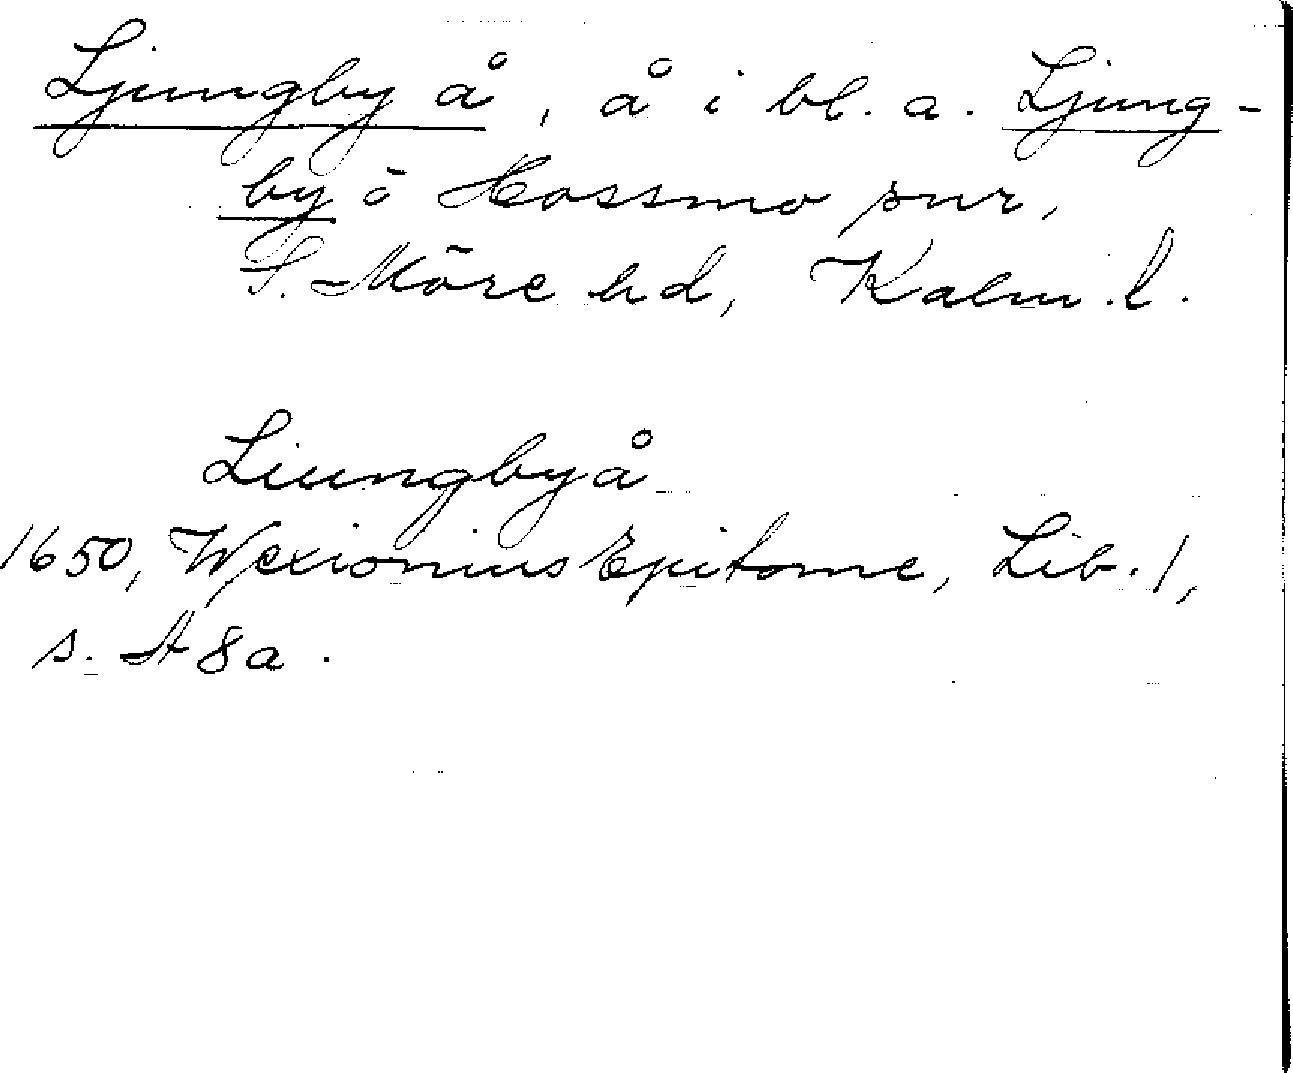 Ljungby å, å i bl. a. Ljung-
by o Hossmo snr,
S. Möre hd, Kalm. l.
Liungbyå
1650, Wexionius Epitome, Lib. 1,
s. A 8 a.